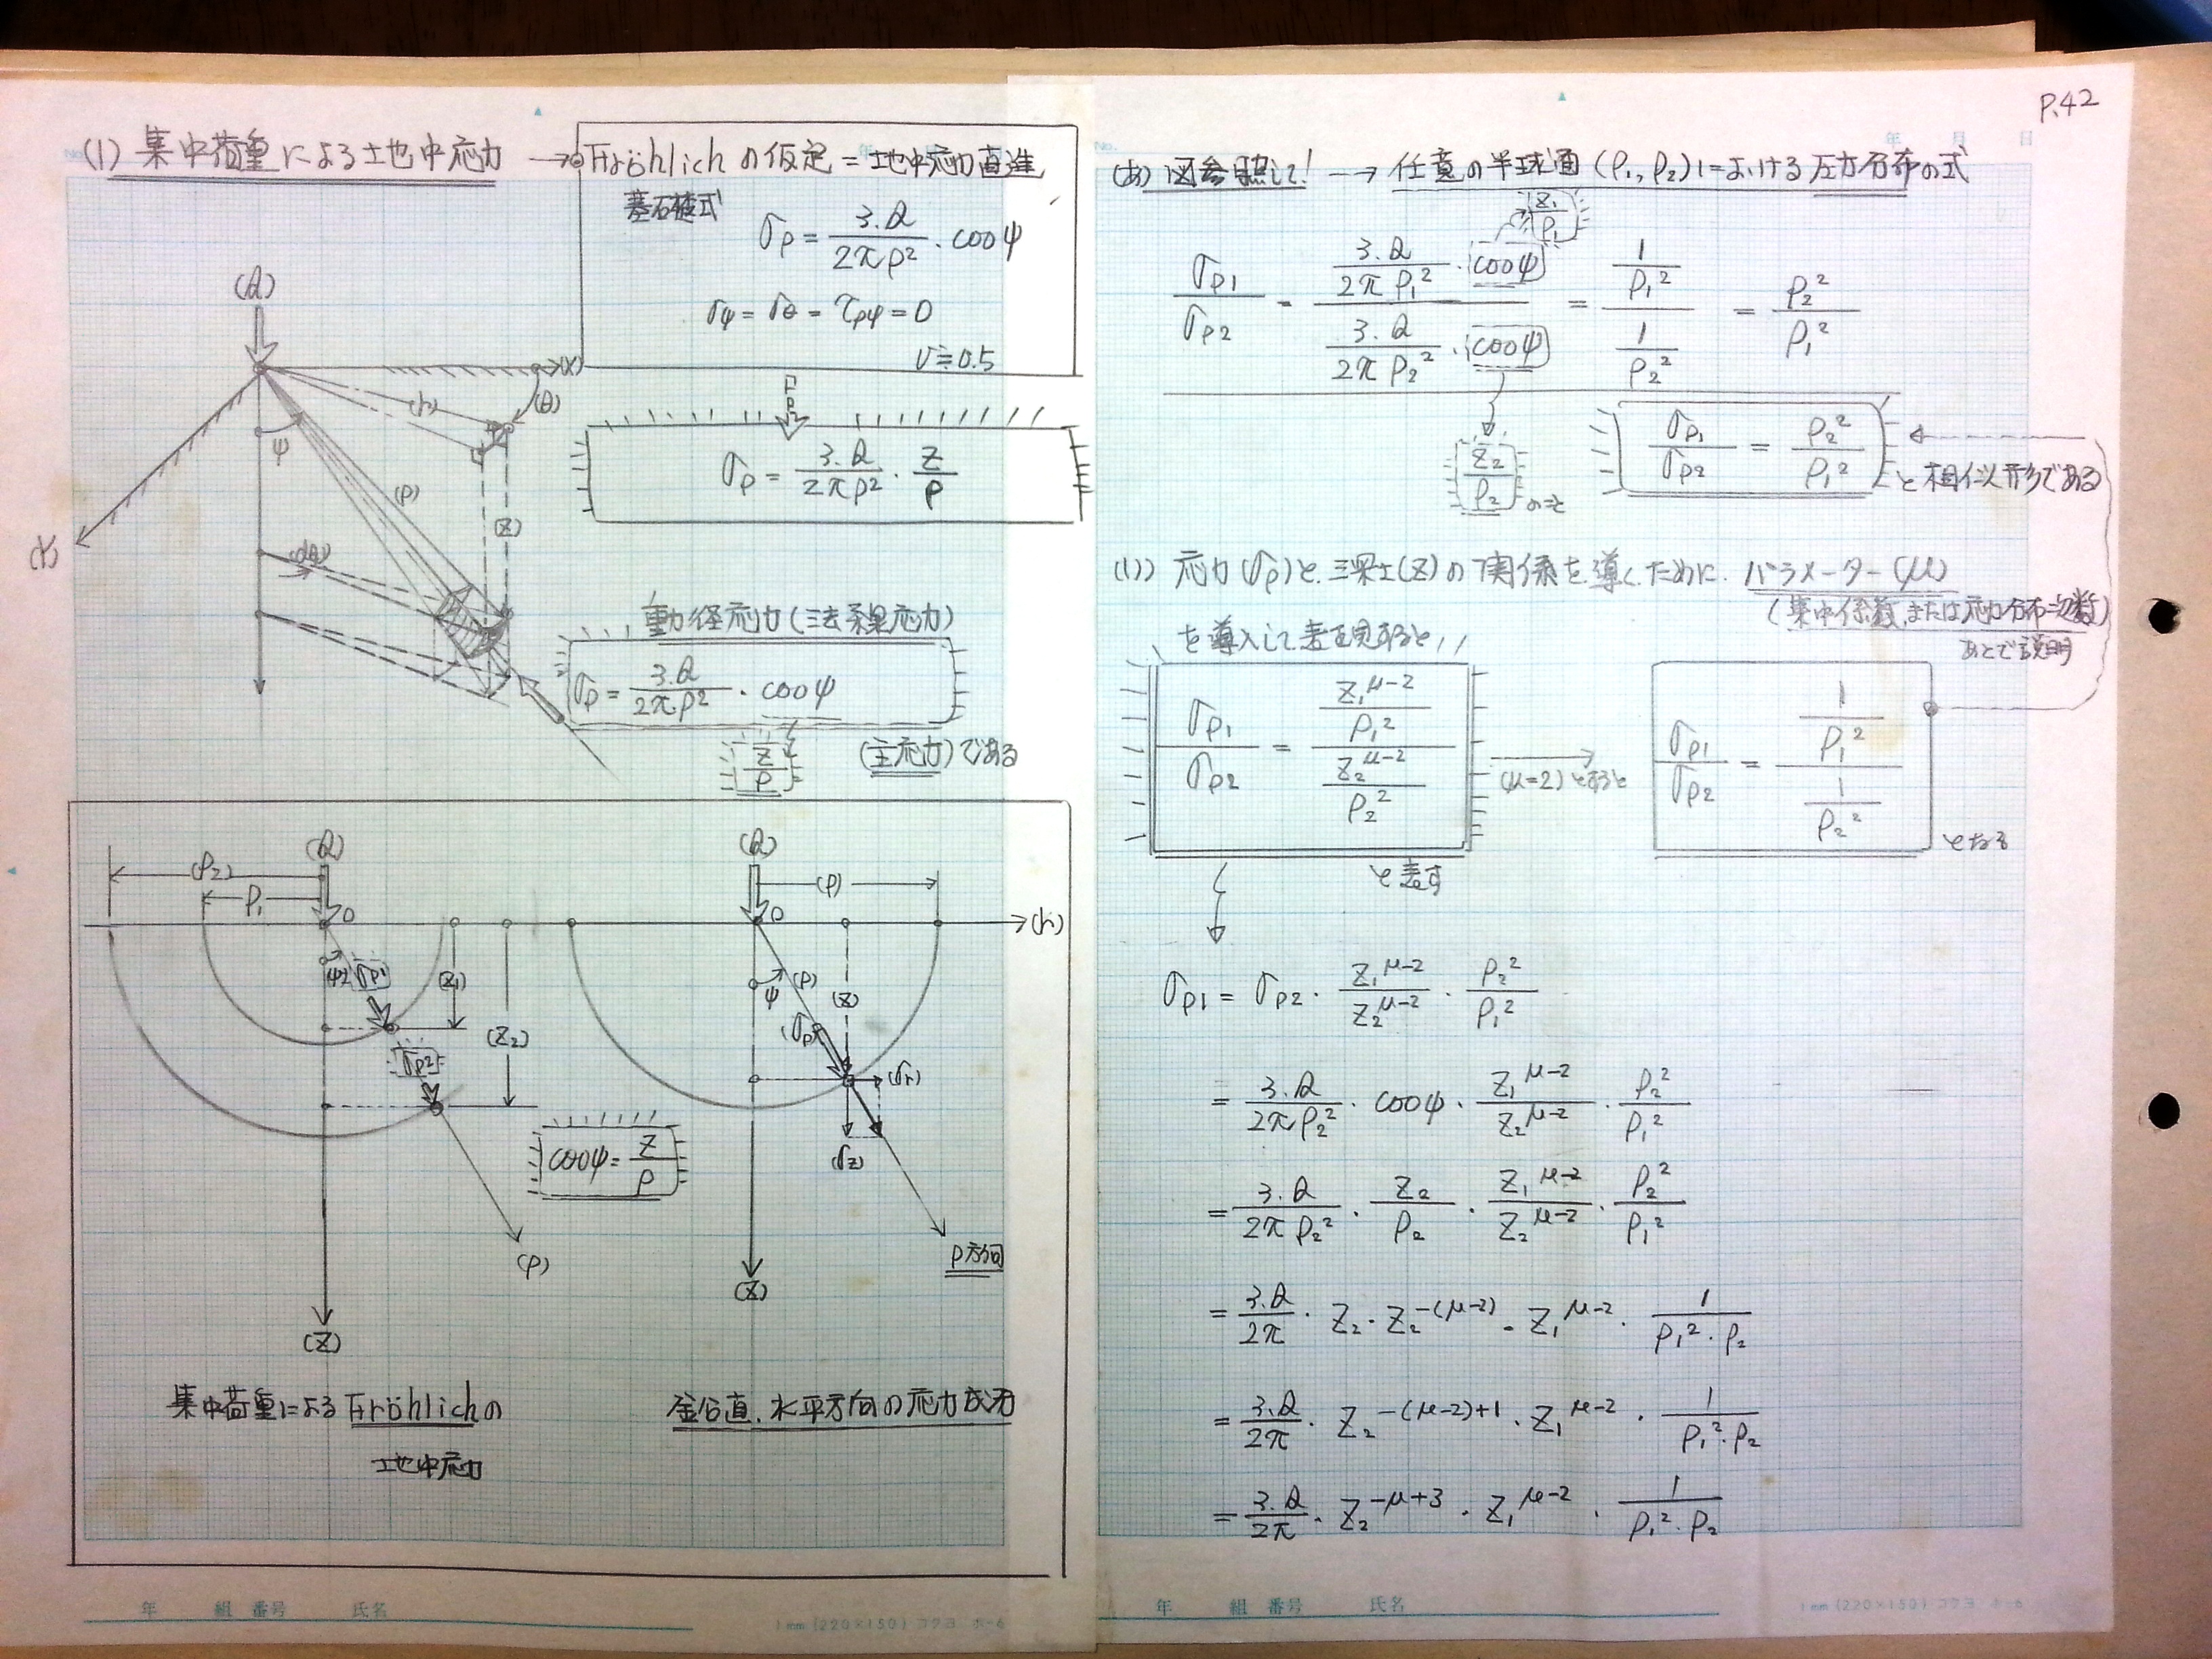 P.42
(1) 集中荷重による土地中応力 → Fröhlich の仮定 = 地中応力直進
基礎式
σρ = 3.Q / 2πρ² · cosψ
σψ = σθ = τρψ = 0
ν≒0.5
σρ = 3.Q / 2πρ² · Z / ρ
(Q)
(X)
(r)
(θ)
ψ
(ρ)
(Z)
(Y)
(dθ)
動径応力(法線応力)
σρ = 3.Q / 2πρ² · cosψ
Z / ρ
(主応力)である
(Q)
(ρ2)
ρ1
O
ψ
σρ1
(Z1)
σρ2
(Z2)
cosψ = Z / ρ
(ρ)
(Z)
集中荷重による Fröhlichの
地中応力
(Q)
(ρ)
O
(r)
ψ
(ρ)
(Z)
(σρ)
(σr)
(σz)
ρ方向
(Z)
鉛直.水平方向の応力成分
年 組 番号 氏名
1mm (220×150) コクヨ ホ-6
No. 年 月 日
(あ) 図参照して! → 任意の半球面 (ρ1, ρ2)における圧力分布の式
Z1 / ρ1
σρ1 / σρ2 = (3.Q / 2πρ1² · cosψ) / (3.Q / 2πρ2² · cosψ) = (1 / ρ1²) / (1 / ρ2²) = ρ2² / ρ1²
Z2 / ρ2 のこと
σρ1 / σρ2 = ρ2² / ρ1² と相似形である
(い) 応力(σρ)と.深さ(Z)の関係を導くために. パラメーター(μ)
(集中係数.または応力分布次数)
あとで説明
を導入して表現すると,,
σρ1 / σρ2 = (Z1^μ-2 / ρ1²) / (Z2^μ-2 / ρ2²)
と表す
(μ=2)とすると
σρ1 / σρ2 = (1 / ρ1²) / (1 / ρ2²)
となる
σρ1 = σρ2 · Z1^μ-2 / Z2^μ-2 · ρ2² / ρ1²
= 3.Q / 2πρ2² · cosψ · Z1^μ-2 / Z2^μ-2 · ρ2² / ρ1²
= 3.Q / 2πρ2² · Z2 / ρ2 · Z1^μ-2 / Z2^μ-2 · ρ2² / ρ1²
= 3.Q / 2π · Z2 · Z2^-(μ-2) · Z1^μ-2 · 1 / ρ1² · ρ2
= 3.Q / 2π · Z2^-(μ-2)+1 · Z1^μ-2 · 1 / ρ1² · ρ2
= 3.Q / 2π · Z2^-μ+3 · Z1^μ-2 · 1 / ρ1² · ρ2
年 組 番号 氏名
1mm (220×150) コクヨ ホ-6